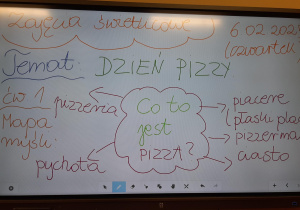 Zajęcia świetlicowe
6 02 202
(czwartek
Temat: DZIEŃ PIZZY
ćw 1
Mapa
myśli:
pizzeria
pychota
Co to
jest
PIZZA?
pieczenie
płaski pla
pizzerman
ciasto